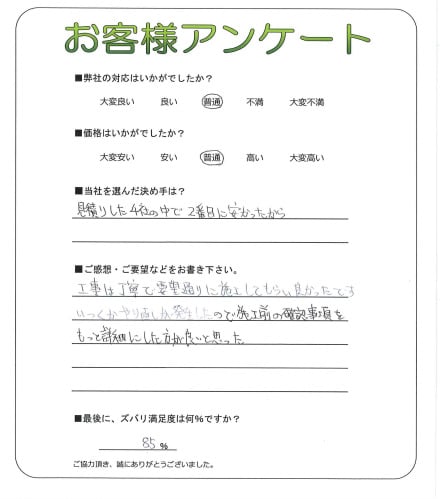 お客様アンケート
■弊社の対応はいかがでしたか？
大変良い 良い 普通 不満 大変不満
■価格はいかがでしたか？
大変安い 安い 普通 高い 大変高い
■当社を選んだ決め手は？
見積りした4社の中で2番目に安かったから
■ご感想・ご要望などをお書き下さい。
工事は丁寧で要望通りに施工してもらい良かったですが
いくつかやり直しが発生したので施工前の確認事項を
もっと詳細にした方が良いと思った
■最後に、ズバリ満足度は何%ですか？
85%
ご協力頂き、誠にありがとうございました。